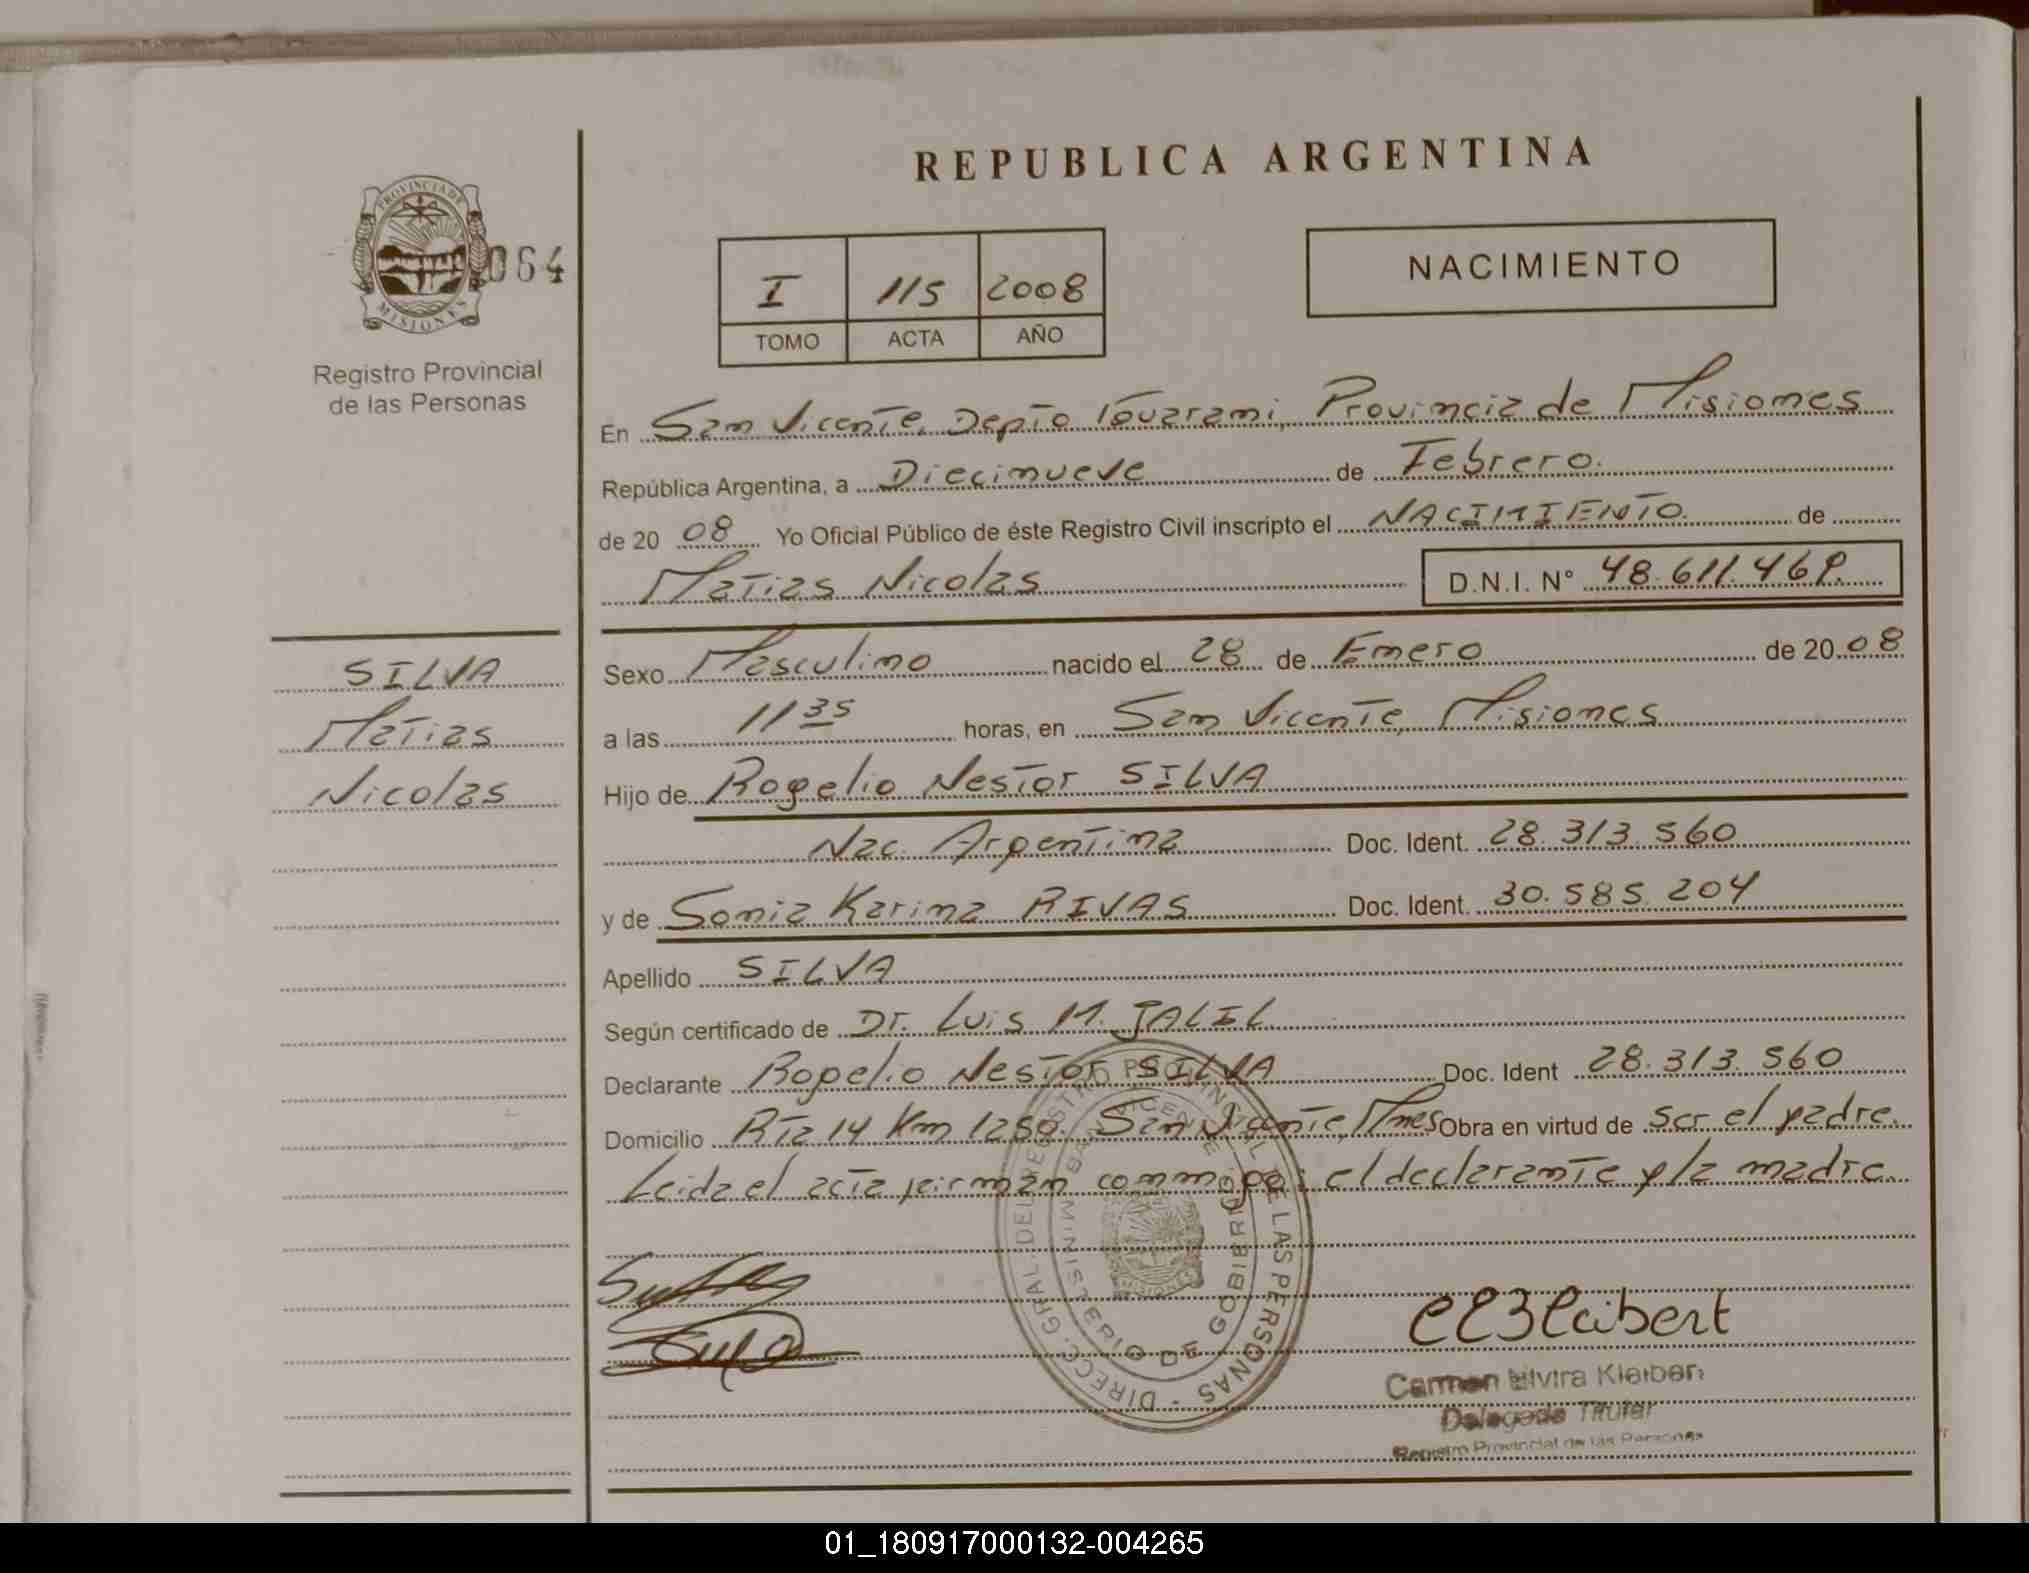 REPUBLICA ARGENTINA
PROVINCIA DE MISIONES
064
Registro Provincial
de las Personas
I 115 2008
TOMO ACTA AÑO
NACIMIENTO
En San Vicente, Depto Guarani, Provincia de Misiones
República Argentina, a Diecinueve de Febrero.
de 20 08 Yo Oficial Público de éste Registro Civil inscripto el NACIMIENTO. de
Matias Nicolas D.N.I. N° 48.611.469.
SILVA
Matias
Nicolas
Sexo Masculino nacido el 28 de Enero de 20 08
a las 11 35 horas, en San Vicente, Misiones
Hijo de Rogelio Nestor SILVA
Nac. Argentina Doc. Ident. 28.313.560
y de Sonia Karina RIVAS Doc. Ident. 30.585.204
Apellido SILVA
Según certificado de Dr. Luis M. JALIL
Declarante Rogelio Nestor SILVA Doc. Ident 28.313.560
Domicilio Rta 14 Km 1250. San Vicente, Mnes Obra en virtud de ser el padre.
Leida el acta firman conmigo: el declarante y la madre.
DIRECC. GRAL. DEL REGISTRO PROVINCIAL DE LAS PERSONAS -
SAN VICENTE
MINISTERIO DE GOBIERNO
CEKleibert
Carmen Elvira Kleibert
Delegada Titular
Registro Provincial de las Personas
01_180917000132-004265